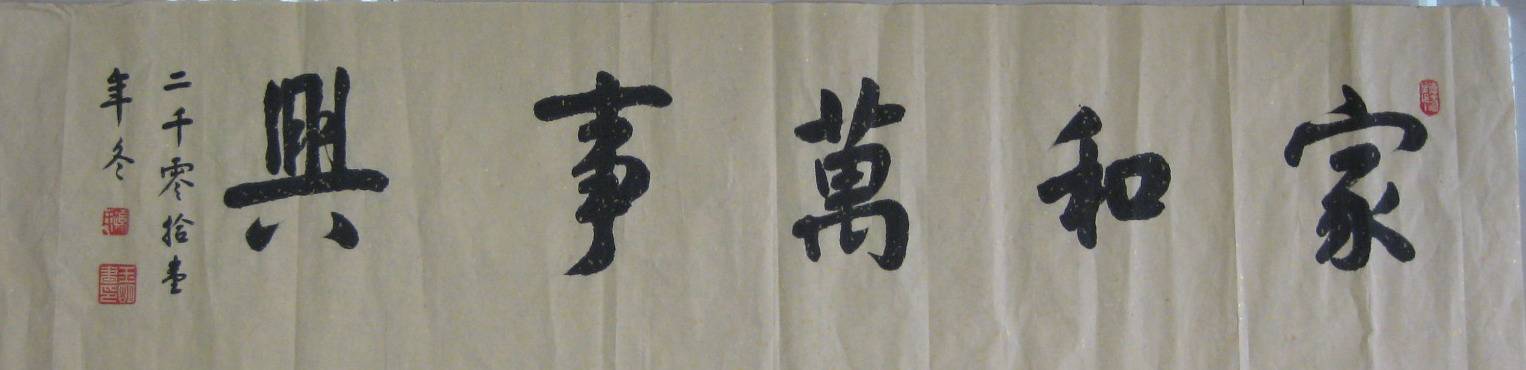 家和萬事興
二千零拾壹
年冬